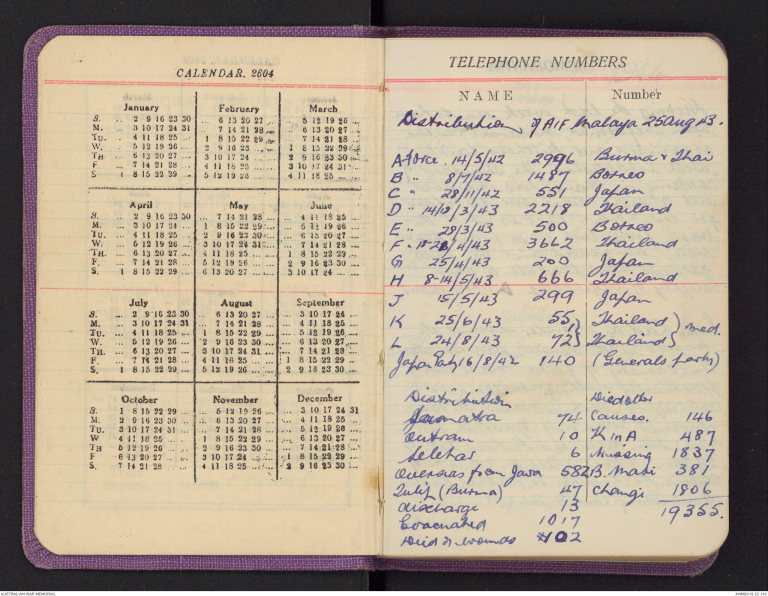 CALENDAR, 2604
January February March
S. ... 2 9 16 23 30 ... 6 13 20 27 ... ... 5 12 19 26 ...
M. ... 3 10 17 24 31 ... 7 14 21 28 ... ... 6 13 20 27 ...
TU. ... 4 11 18 25 ... 1 8 15 22 29 ... ... 7 14 21 28 ...
W. ... 5 12 19 26 ... 2 9 16 23 ... 1 8 15 22 29 ...
TH ... 6 13 20 27 ... 3 10 17 24 ... 2 9 16 23 30 ...
F. ... 7 14 21 28 ... 4 11 18 25 ... 3 10 17 24 31 ...
S 1 8 15 22 29 ... 5 12 19 26 ... 4 11 18 25 ...
April May June
S. ... 2 9 16 23 30 ... 7 14 21 28 ... ... 4 11 18 25 ...
M. ... 3 10 17 24 ... 1 8 15 22 29 ... ... 5 12 19 26 ...
TU. ... 4 11 18 25 ... 2 9 16 23 30 ... ... 6 13 20 27 ...
W. ... 5 12 19 26 ... 3 10 17 24 31 ... ... 7 14 21 28 ...
TH. ... 6 13 20 27 ... 4 11 18 25 ... 1 8 15 22 29 ...
F. ... 7 14 21 28 ... 5 12 19 26 ... 2 9 16 23 30 ...
S. 1 8 15 22 29 ... 6 13 20 27 ... 3 10 17 24 ...
July August September
S. ... 2 9 16 23 30 ... 6 13 20 27 ... ... 3 10 17 24 ...
M. ... 3 10 17 24 31 ... 7 14 21 28 ... ... 4 11 18 25 ...
TU. ... 4 11 18 25 ... 1 8 15 22 29 ... ... 5 12 19 26 ...
W. ... 5 12 19 26 ... 2 9 16 23 30 ... ... 6 13 20 27 ...
TH. ... 6 13 20 27 ... 3 10 17 24 31 ... ... 7 14 21 28 ...
F. ... 7 14 21 28 ... 4 11 18 25 ... 1 8 15 22 29 ...
S. 1 8 15 22 29 ... 5 12 19 26 ... 2 9 16 23 30 ...
October November December
S. 1 8 15 22 29 ... ... 5 12 19 26 ... ... 3 10 17 24 31
M. 2 9 16 23 30 ... ... 6 13 20 27 ... ... 4 11 18 25 ...
TU. 3 10 17 24 31 ... ... 7 14 21 28 ... ... 5 12 19 26 ...
W 4 11 18 25 ... 1 8 15 22 29 ... ... 6 13 20 27 ...
TH 5 12 19 26 ... 2 9 16 23 30 ... ... 7 14 21 28 ...
F 6 13 20 27 ... 3 10 17 24 ... 1 8 15 22 29 ...
S. 7 14 21 28 ... 4 11 18 25 ... 2 9 16 23 30 ...
TELEPHONE NUMBERS
NAME Number
Distribution of AIF Malaya 25 Aug 43.
A force. 14/5/42 2996 Burma & Thai
B " 8/7/42 1487 Borneo
C " 28/11/42 551 Japan
D " 14/18/3/43 2218 Thailand
E " 28/3/43 500 Borneo
F " /4/43 3662 Thailand
G 25/4/43 200 Japan
H 8-14/5/43 666 Thailand
J 15/5/43 299 Japan
K 25/6/43 55 } Thailand } med.
L 24/8/43 72 } Thailand }
Japan Party 16/8/42 140 (Generals party)
Distribution Died other
Sumatra 74 Causes. 146
Outram 10 K in A 487
Seletar 6 Missing 1837
Overseas from Java 582 B. Madi 381
Tulip (Burma) 47 Changi 1806
discharge 13 19355.
Evacuated 1017
Died of wounds 402
AUSTRALIAN WAR MEMORIAL
AWM2018.22.142